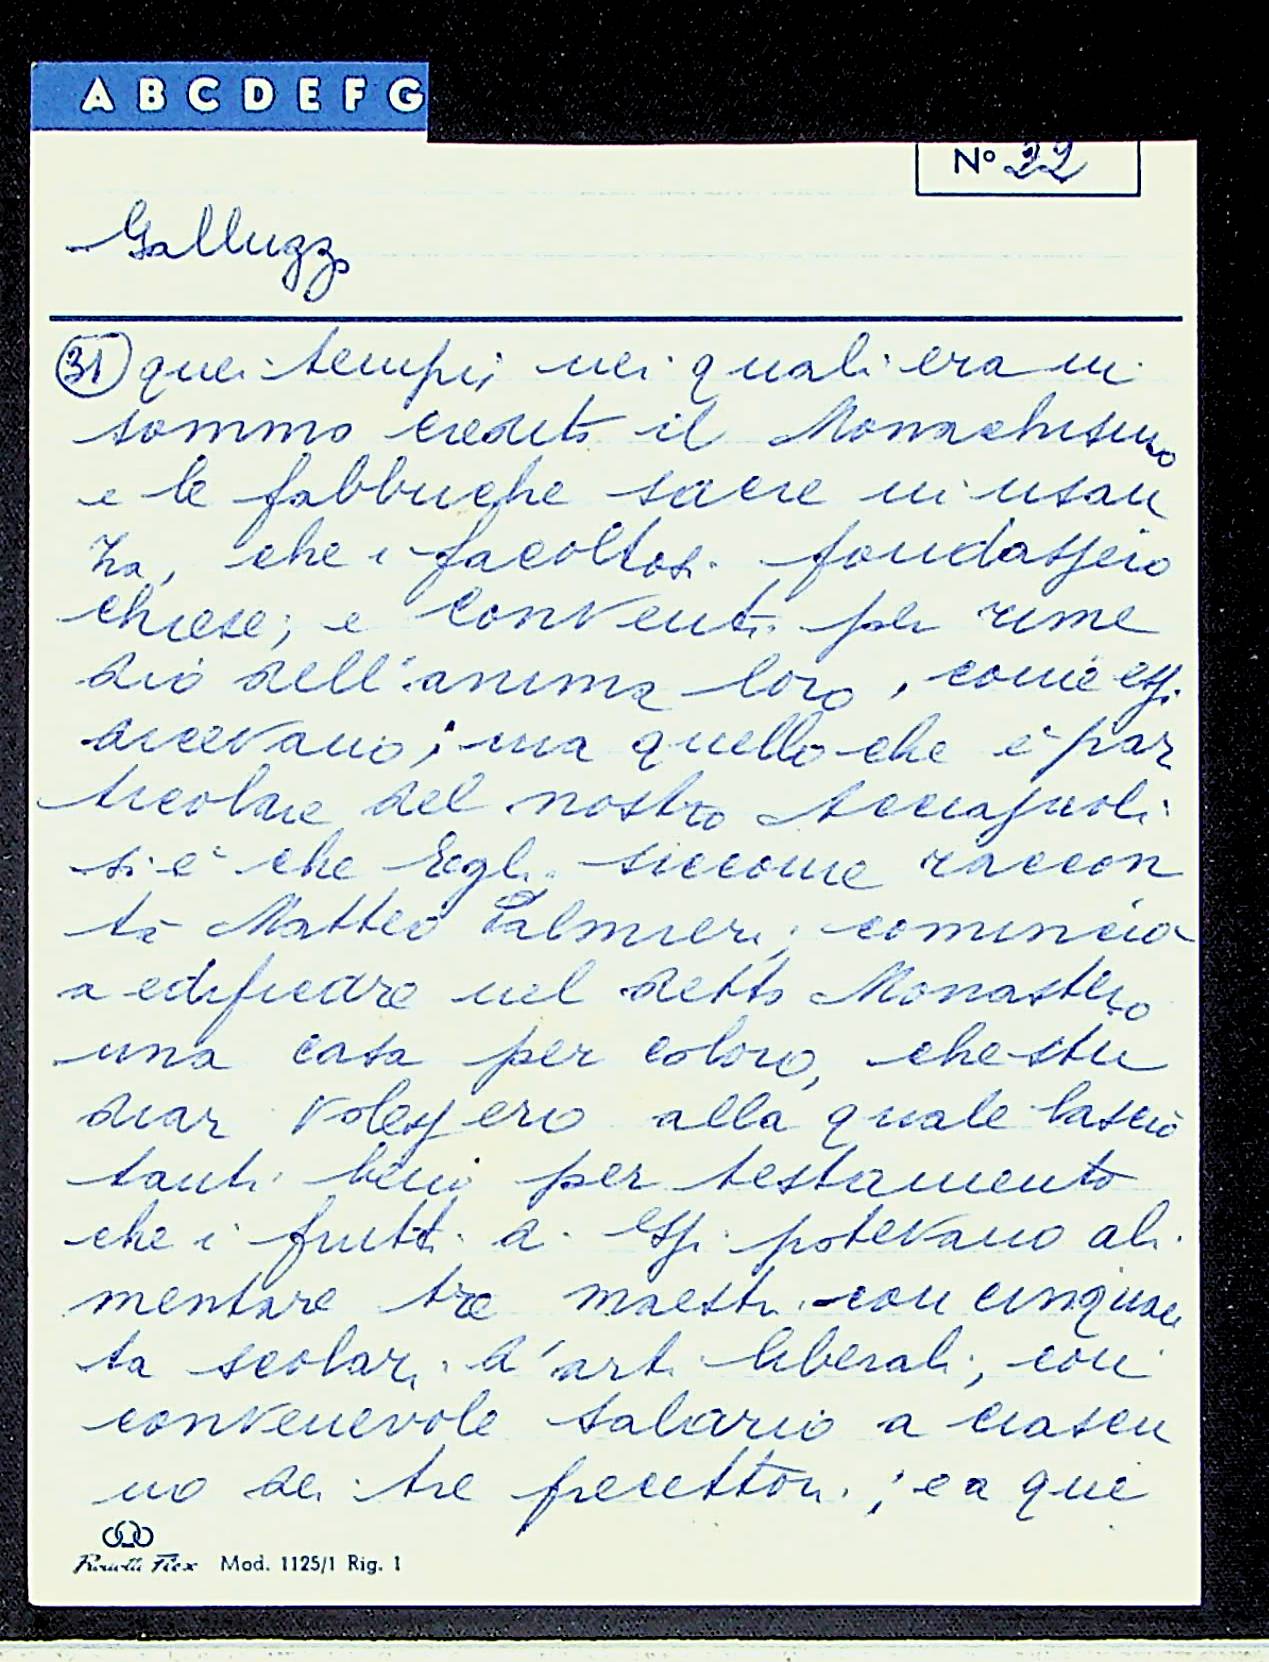 A B C D E F G
N° 22
Galluzzo
31 quei tempi, nei quali era in
sommo credito il Monachismo
e le fabbriche sacre in usan
za, che i facoltosi fondassero
chiese, e Conventi per rime
dio dell'anima loro, come essi
dicevano; ma quello che è par
ticolare del nostro Acciajuoli
si è che Egli siccome raccon
ta Matteo Palmieri, cominciò
a edificare nel detto Monastero
una casa per coloro, che stu
diar volessero alla quale lasciò
tanti beni per testamento
che i frutti di essi potevano ali
mentare tre maestri con cinquan
ta scolari d'arti liberali, con
convenevole salario a ciascu
no dei tre precettori; e a que
Mod. 1125/1 Rig. 1